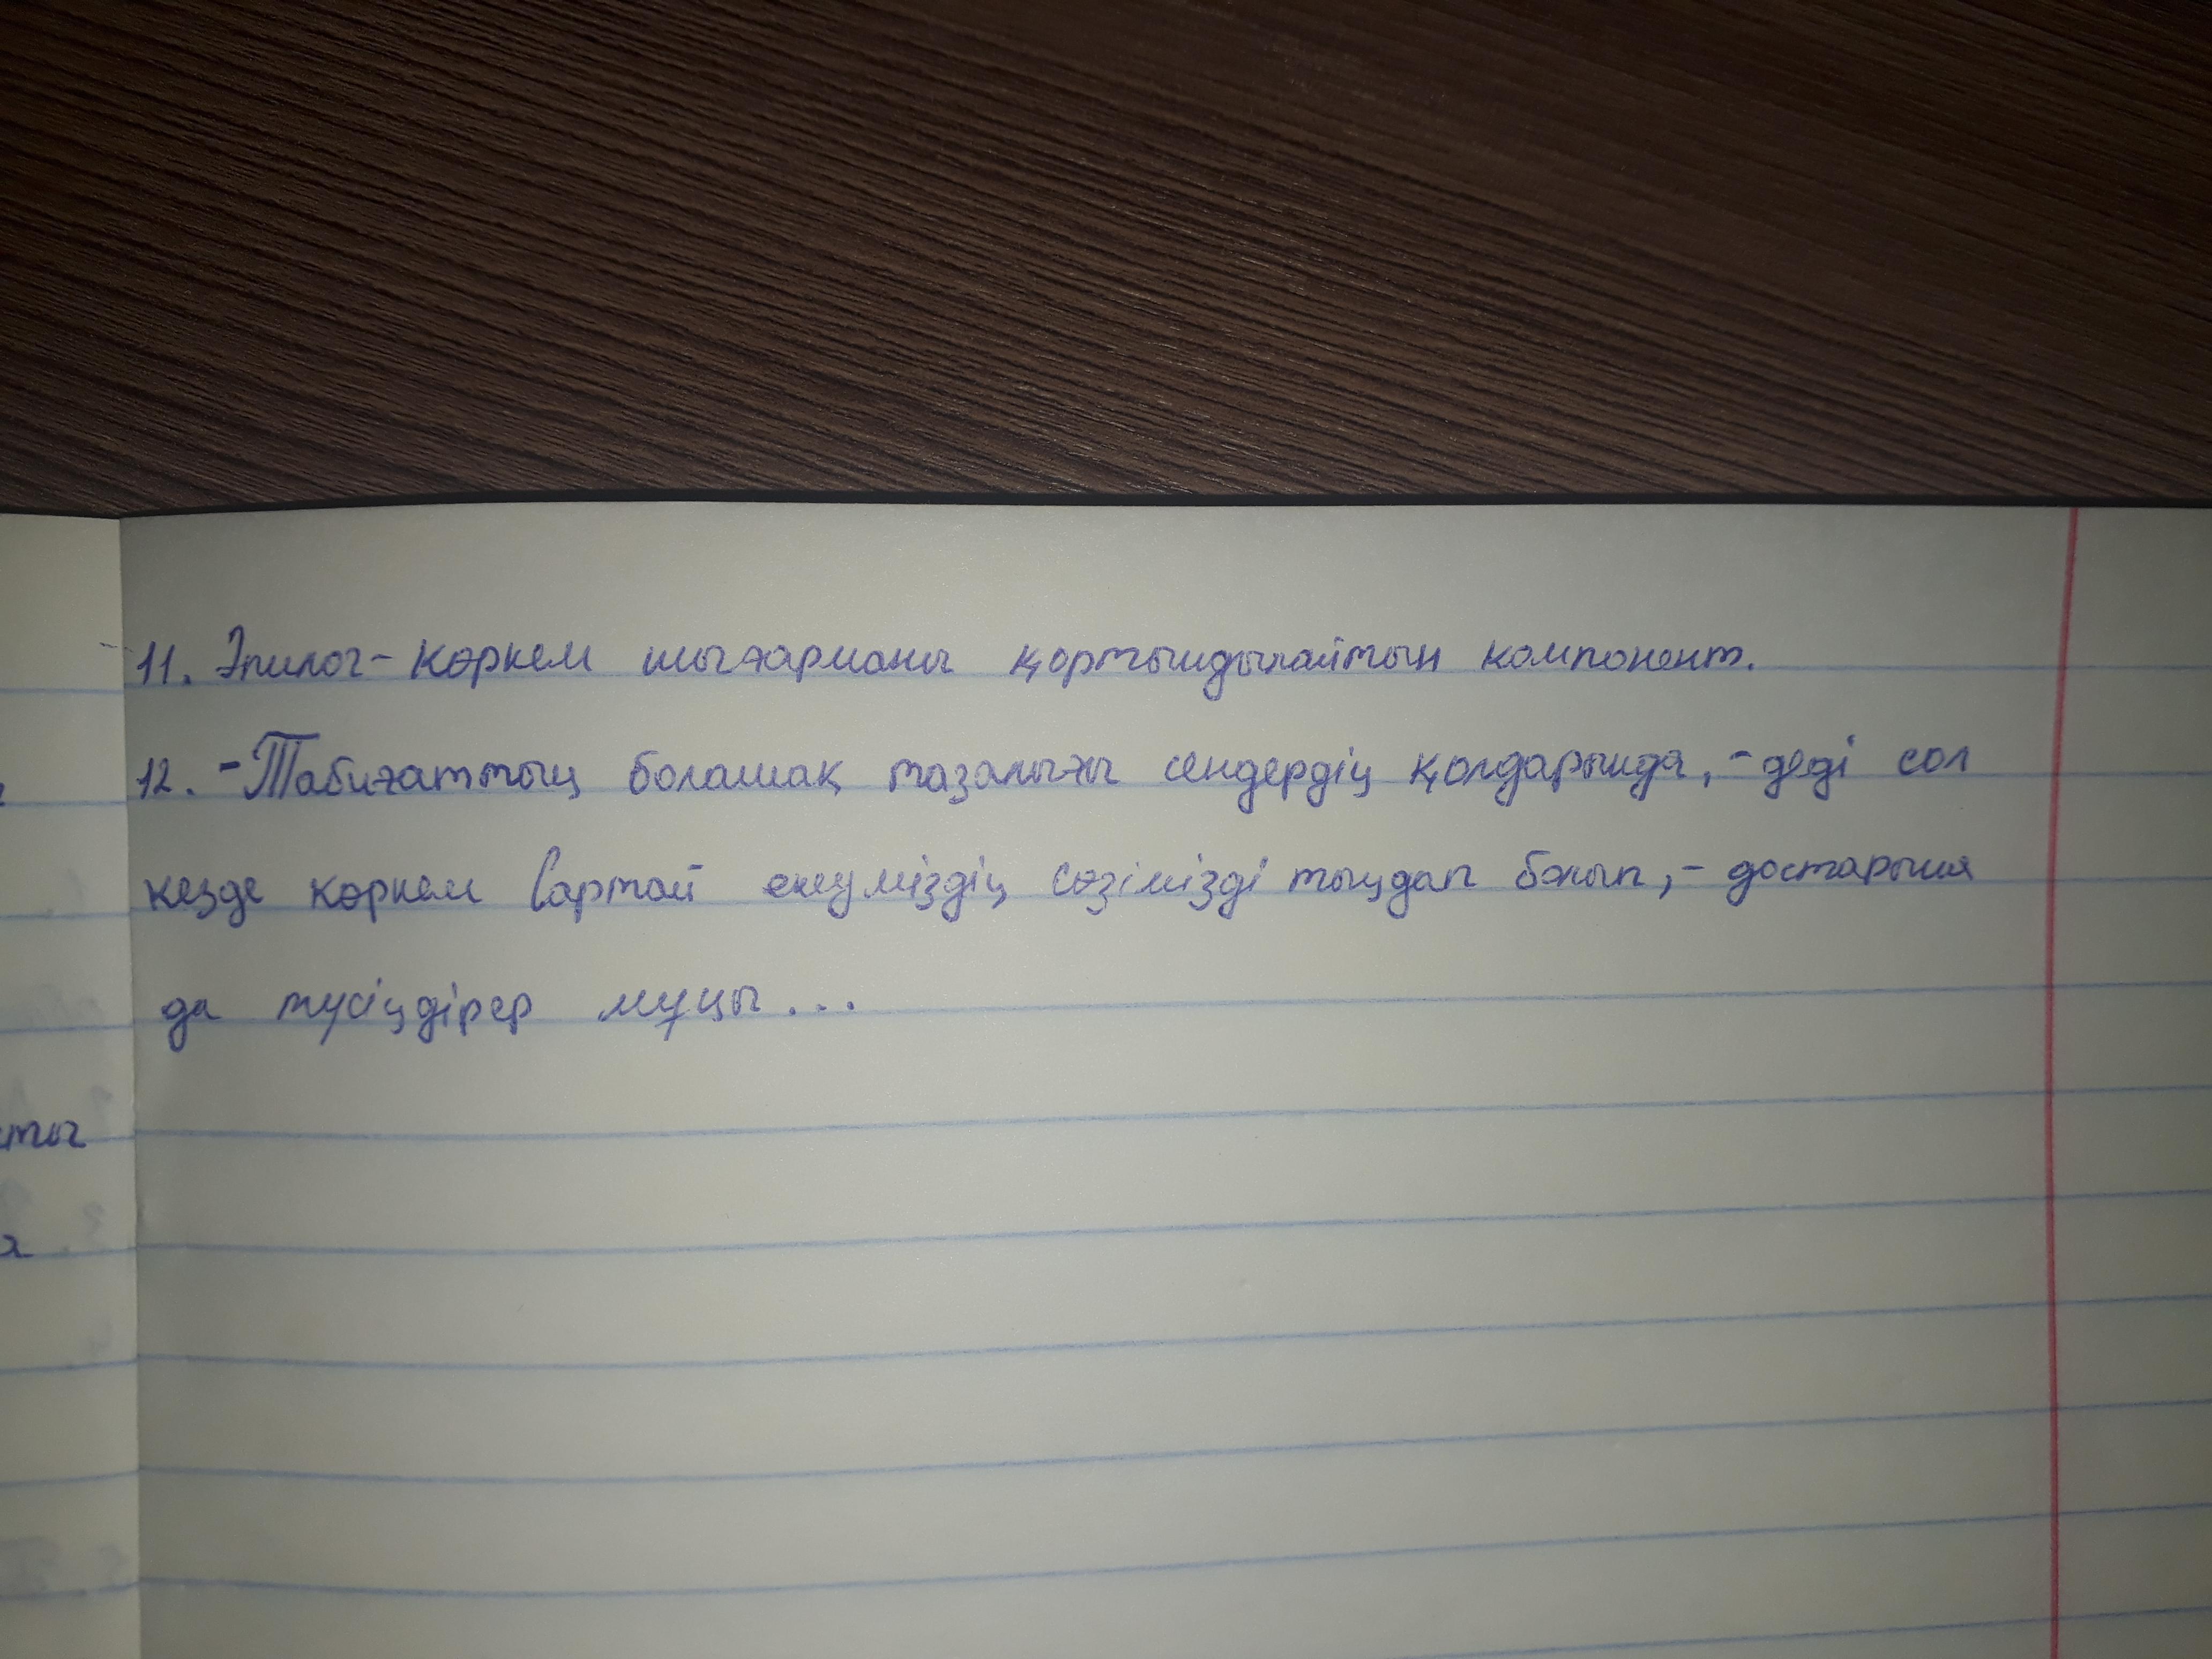 11. Эпилог - Көркем шығарманы қортындылайтын компонент.
12. - Табиғаттың болашақ тазалығы сендердің қолдарында, - деді сол
кезде көркем Сартай екеуміздің сөзімізді тыңдап болып, - достарыңа
да түсіндірер мұңы...
тты